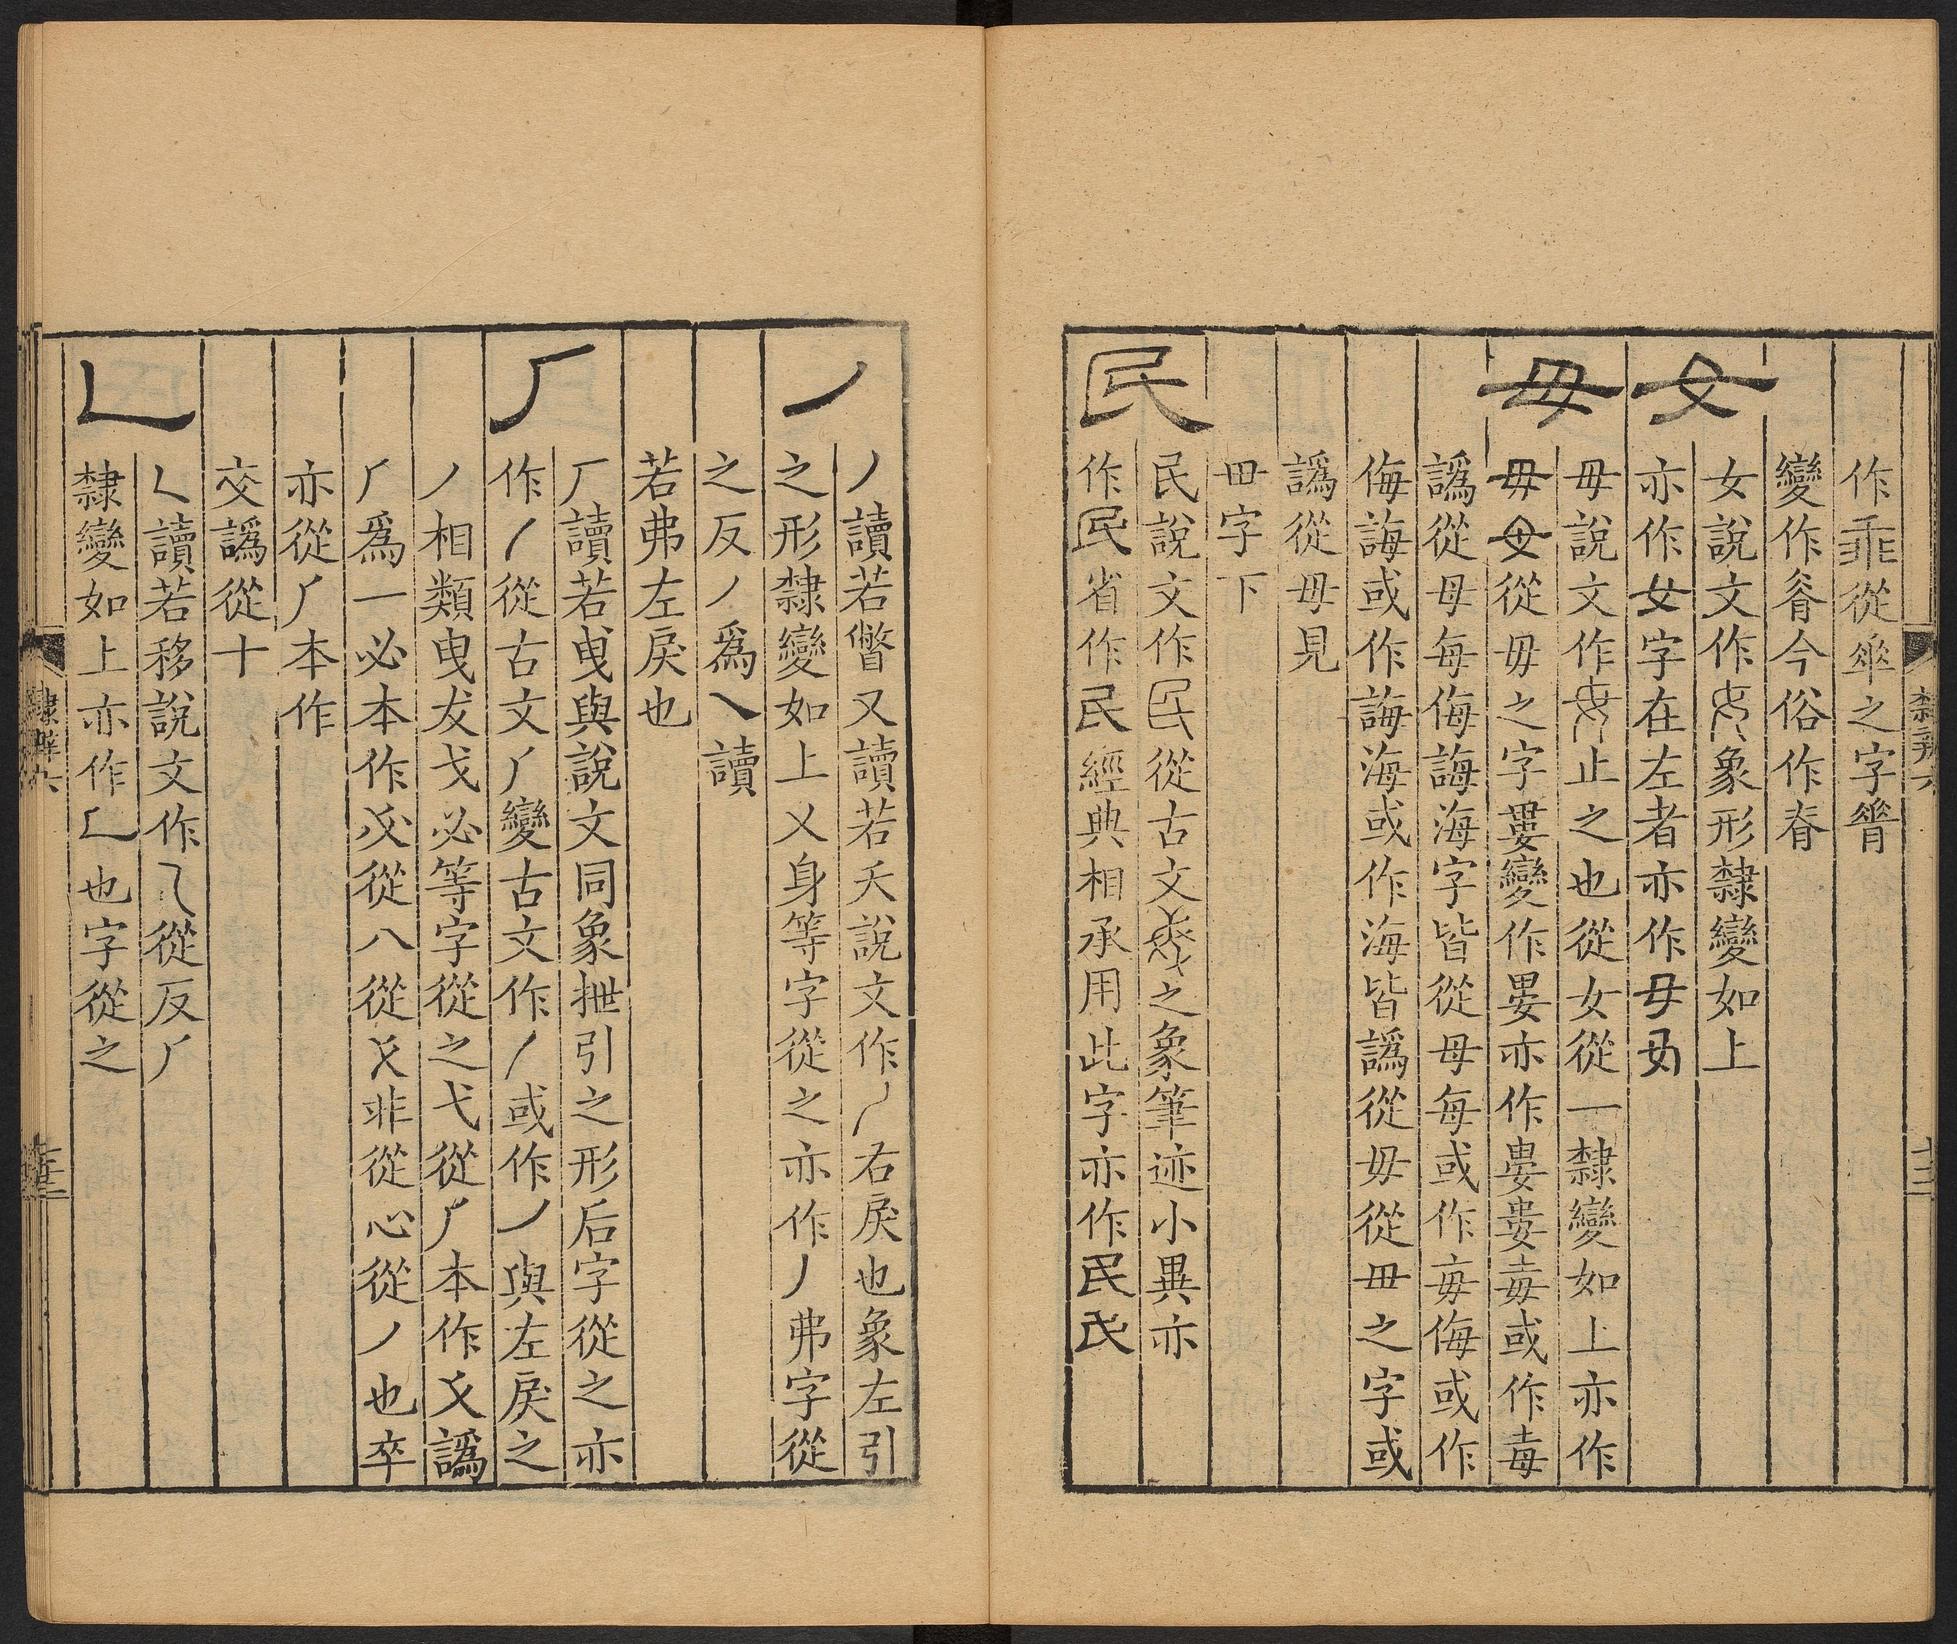 作乖從𠂹之字𦟝
變作脊今俗作脊
女
女說文作象形隸變如上
亦作女字在左者亦作
毋
毋說文作止之也從女從一隸變如上亦作
毋從毋之字婁變作婁亦作婁婁毒或作毒
譌從母每侮誨海字皆從母每或作毎侮或作
侮誨或作誨海或作海皆譌從毋從毌之字或
譌從毋見
毌字下
民
民說文作從古文之象筆迹小異亦
作民省作民經典相承用此字亦作民民
隸辨六
十二
丿
丿讀若弊又讀若夭說文作丿右戾也象左引
之形隸變如上乂身等字從之亦作丿弗字從
之反丿爲乀讀
若弗左戾也
𠂆
𠂆讀若曳與說文同象抴引之形后字從之亦
作丿從古文𠂆變古文作丿或作丿與左戾之
丿相類曳犮戈必等字從之弋從𠂆本作譌
𠂆爲一必本作從八從非從心從丿也卒
亦從𠂆本作
交譌從十
乚
乀讀若移說文作乁從反𠂆
隸變如上亦作乚也字從之
隸辨六
十三